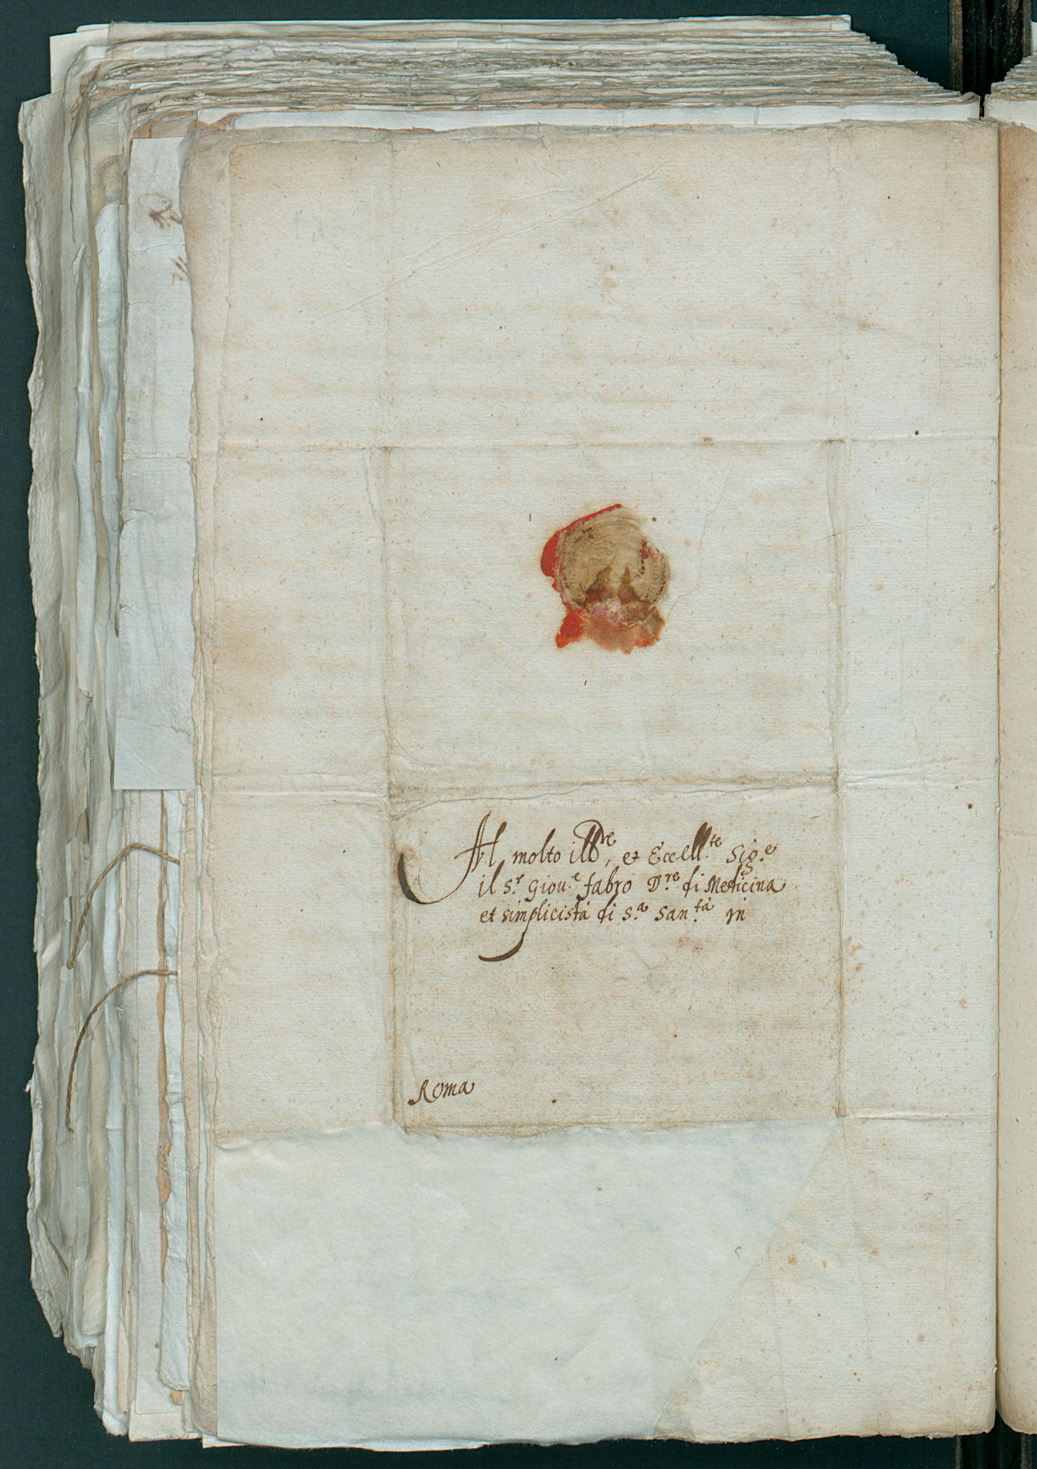 Al molto ill.re, et Eccell.te Sig.e
il S.r Giou.e fabro D.re di Medicina
et simplicista di S.a San.tà in
Roma